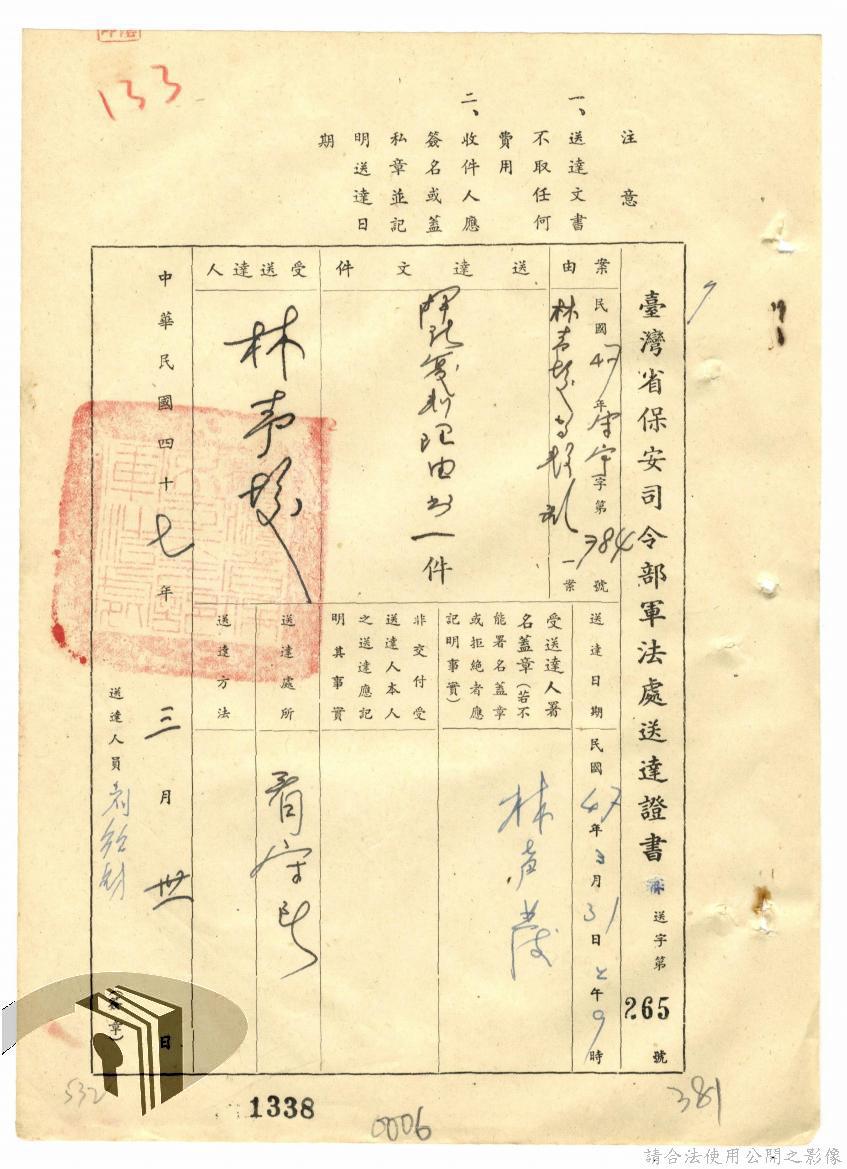 133
注意
一、送達文書
不取任何
費用
二、收件人應
簽名或蓋
私章並記
明送達日
期
臺灣省保安司令部軍法處送達證書
送字第265號
案由
民國47年 字第384號
林 一案
送達文件
理由書一件
受送達人
林
送達日期
民國47年3月31日上午9時
受送達人署
名蓋章(若不
能署名蓋章
或拒絕者應
記明事實)
林
非交付受
送達人本人
之送達應記
明其事實
送達處所
看守所
送達方法
中華民國四十七年三月卅一日
送達人員
(簽章)
532
1338
0006
381
請合法使用公開之影像